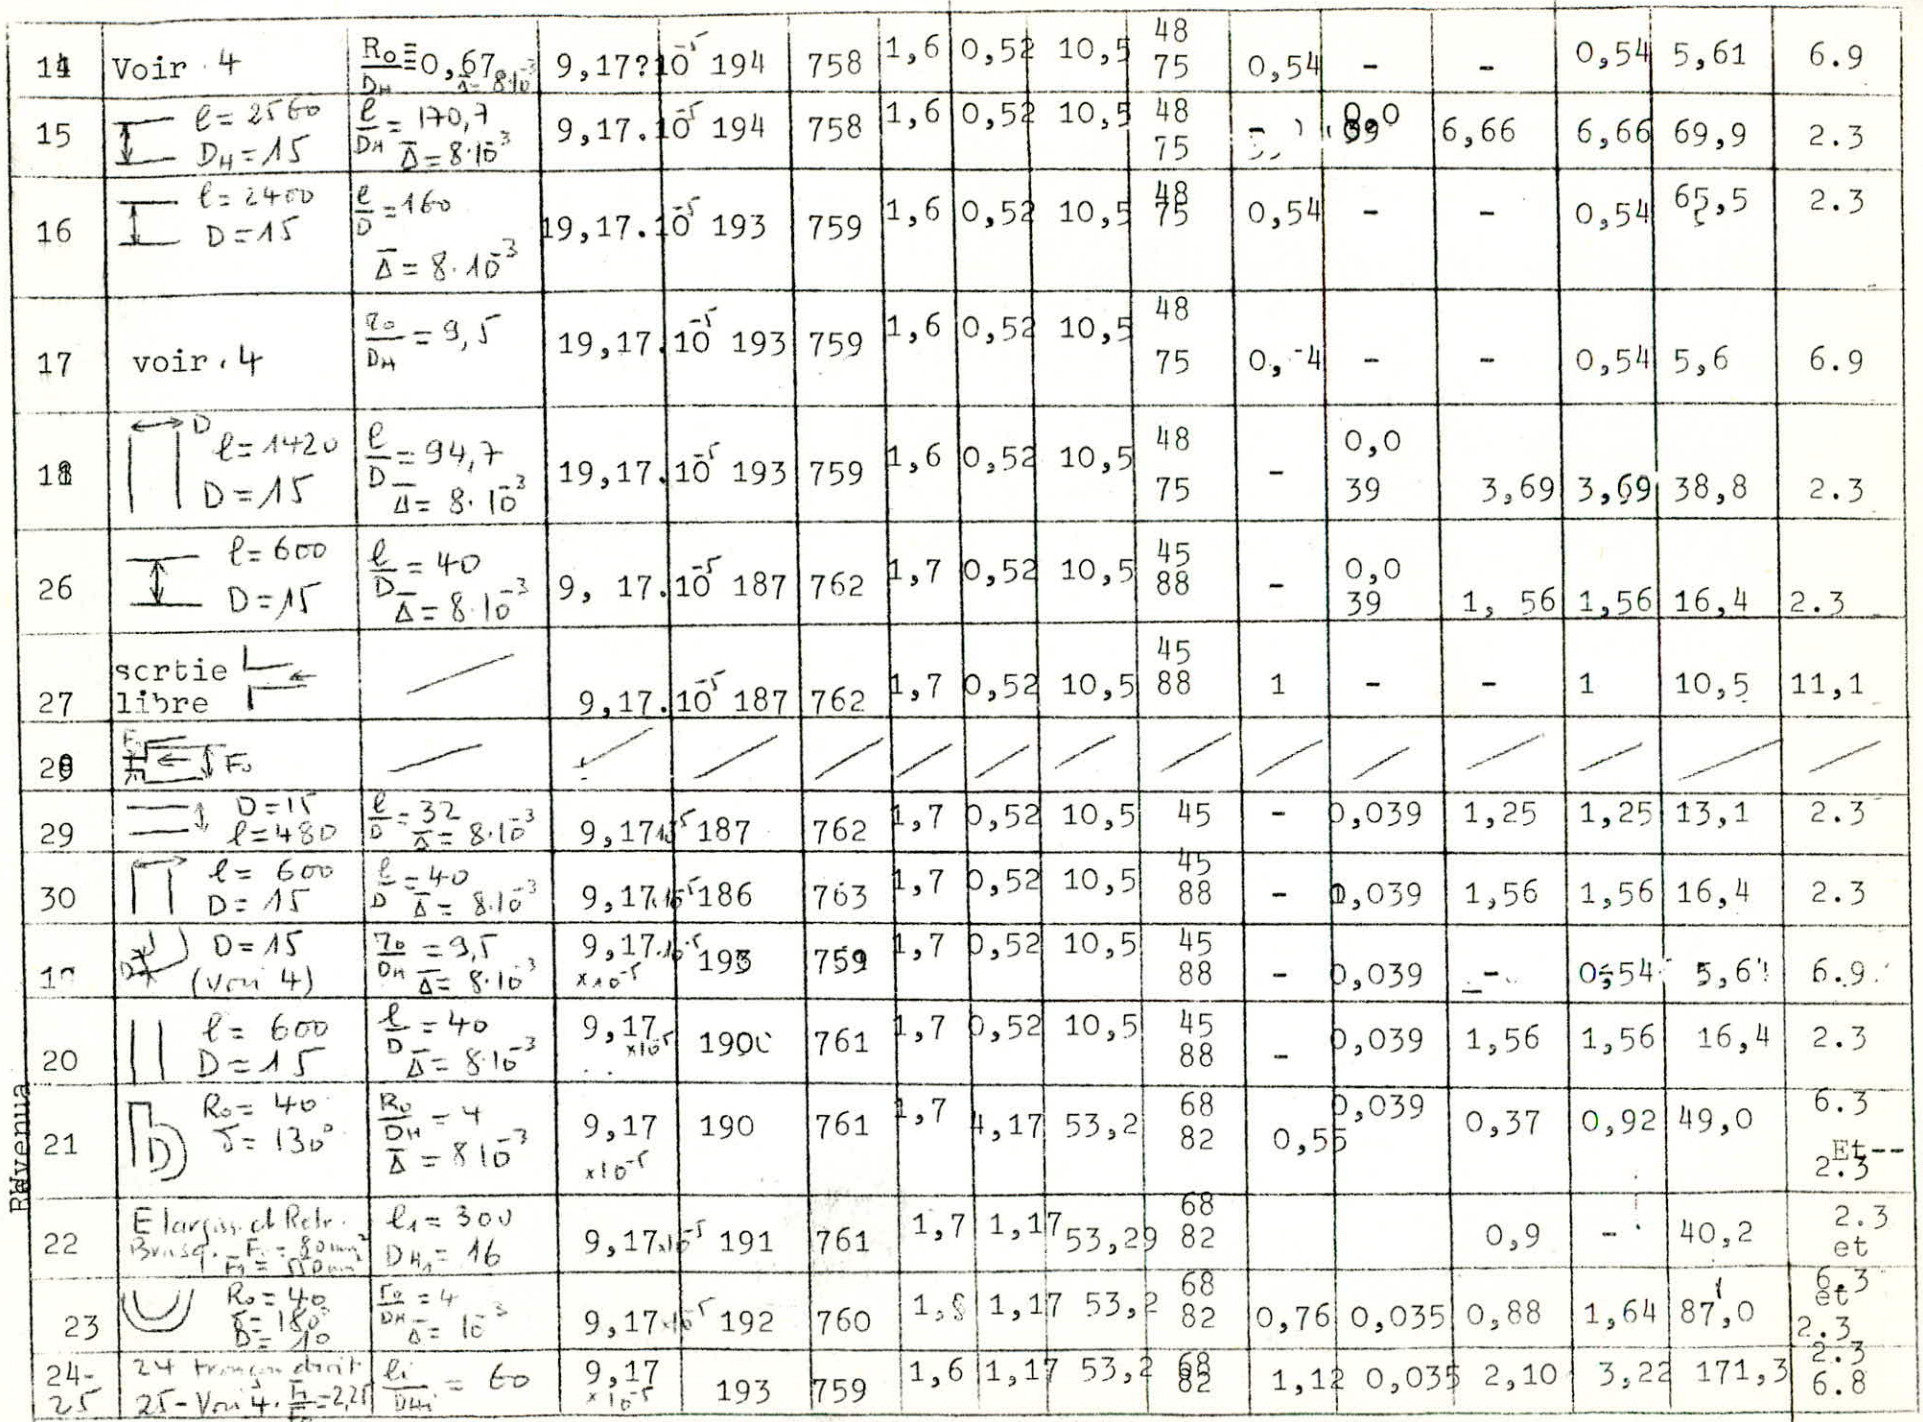 14 Voir 4 Ro/DH ≡ 0,67 Δ̄ = 8·10⁻³ 9,17?10⁻⁵ 194 758 1,6 0,52 10,5 48 75 0,54 - - 0,54 5,61 6.9
15 l = 2560 DH = 15 l/DH = 170,7 Δ̄ = 8·10⁻³ 9,17.10⁻⁵ 194 758 1,6 0,52 10,5 48 75 - 0,0 39 6,66 6,66 69,9 2.3
16 l = 2400 D = 15 l/D = 160 Δ̄ = 8·10⁻³ 19,17.10⁻⁵ 193 759 1,6 0,52 10,5 48 75 0,54 - - 0,54 65,5 2.3
17 voir . 4 ro/DH = 9,5 19,17.10⁻⁵ 193 759 1,6 0,52 10,5 48 75 0, 4 - - 0,54 5,6 6.9
18 D l = 1420 D = 15 l/D = 94,7 Δ̄ = 8·10⁻³ 19,17.10⁻⁵ 193 759 1,6 0,52 10,5 48 75 - 0,0 39 3,69 3,69 38,8 2.3
26 l = 600 D = 15 l/D = 40 Δ̄ = 8·10⁻³ 9, 17.10⁻⁵ 187 762 1,7 0,52 10,5 45 88 - 0,0 39 1, 56 1,56 16,4 2.3
27 scrtie libre 9,17.10⁻⁵ 187 762 1,7 0,52 10,5 45 88 1 - - 1 10,5 11,1
28 F₀
29 D = 15 l = 480 l/D = 32 Δ̄ = 8·10⁻³ 9,17.10⁻⁵ 187 762 1,7 0,52 10,5 45 - 0,039 1,25 1,25 13,1 2.3
30 l = 600 D = 15 l/D = 40 Δ̄ = 8·10⁻³ 9,17.10⁻⁵ 186 763 1,7 0,52 10,5 45 88 - 0,039 1,56 1,56 16,4 2.3
19 D = 15 (voir 4) ro/DH = 9,5 Δ̄ = 8·10⁻³ 9,17.10⁻⁵ ×10⁻⁵ 193 759 1,7 0,52 10,5 45 88 - 0,039 - 0,54 5,6 6.9
20 l = 600 D = 15 l/D = 40 Δ̄ = 8·10⁻³ 9,17 ×10⁻⁵ 190 761 1,7 0,52 10,5 45 88 - 0,039 1,56 1,56 16,4 2.3
21 Ro = 40 δ = 130° Ro/DH = 4 Δ̄ = 8 10⁻³ 9,17 ×10⁻⁵ 190 761 1,7 4,17 53,2 68 82 0,55 0,039 0,37 0,92 49,0 6.3 Et-- 2.3
22 Elargiss. et Retr. Brusq. F₀ = 80mm² F₁ = 550mm² l₁ = 300 DH₁ = 16 9,17.10⁻⁵ 191 761 1,7 1,17 53,29 68 82 0,9 - 40,2 2.3 et 6.3
23 Ro = 40 δ = 180° D = 10 ro/DH = 4 Δ̄ = 10⁻³ 9,17.10⁻⁵ 192 760 1,8 1,17 53,2 68 82 0,76 0,035 0,88 1,64 87,0 et 2.3
24-25 24 tronçon droit 25-Voir 4. =2,25 li/DHi = 60 9,17 ×10⁻⁵ 193 759 1,6 1,17 53,2 68 82 1,12 0,035 2,10 3,22 171,3 2.3 6.8